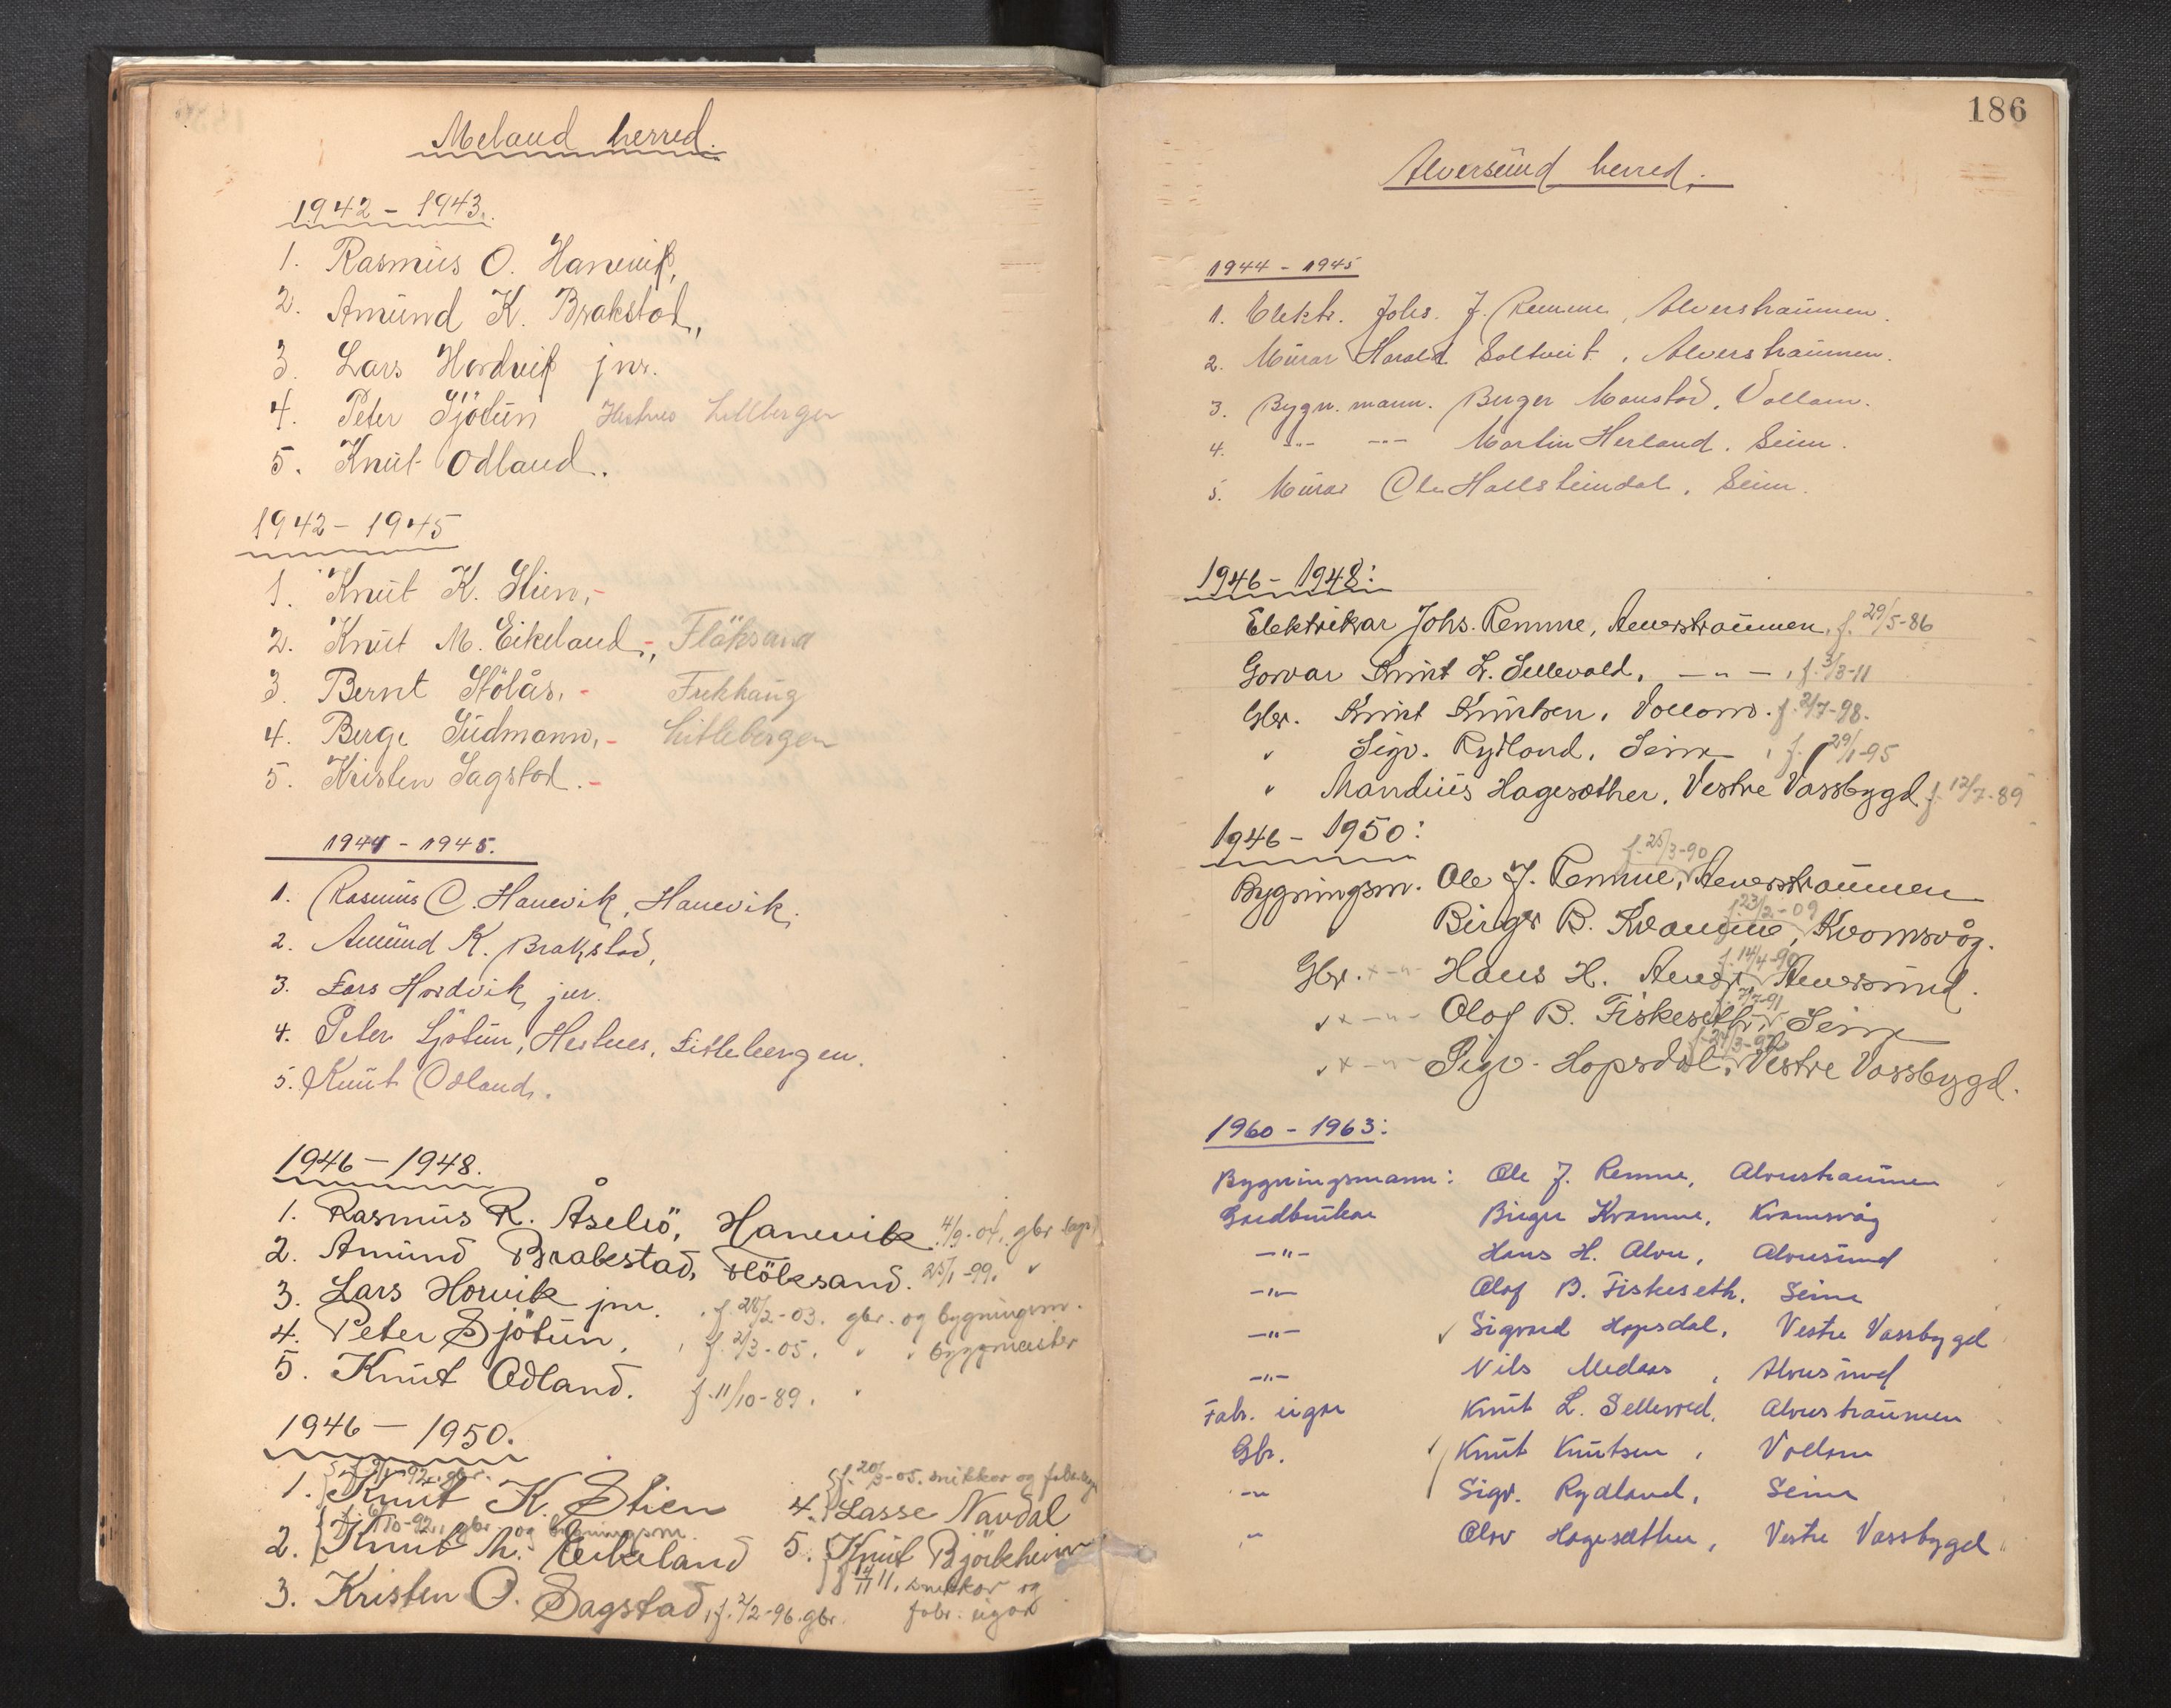 Meland herred.
1942 - 1943.
1. Rasmus O. Hanevik,
2. Amund K. Brakstad,
3. Lars Hordvik jnr.
4. Peter Sjötun Hestnes Littleberger
5. Knut Odland.
1942 - 1945
1. Knut K. Stien, -
2. Knut M. Eikeland, - Flöksand
3. Bernt Stölås, - Frekhaug
4. Berge Sudmann, - Littlebergen
5. Kristen Sagstad. -
1944 - 1945.
1. Rasmus O. Hanevik, Hanevik.
2. Amund K. Brakstad,
3. Lars Hordvik jnr.
4. Peter Sjötun, Hestnes, Littlebergen.
5. Knut Odland.
1946 - 1948.
1. Rasmus R. Åselrö, Hanevik 4/9-04. gbr
2. Amund Brakstad, Flöksand. 25/1-99. "
3. Lars Horvik jnr. f. 28/2-03. gbr. og bygningsm.
4. Peter Sjötun, f. 2/3-05. " " byggmeister
5. Knut Odland. f. 11/10-89. "
1946 - 1950.
gbr.
1. Knut K. Stien
gbr og bygningsm.
2. Knut M. Eikeland
3. Kristen O. Sagstad, f. 2/2-96. gbr.
snikkar og
4. Lasse Navdal
5. Knut Björkheim
snikkar og
fabr. eigar
186
Alversund herred.
1944 - 1945
1. Elektr. Johs. J. Remme, Alverstraumen.
2. Murar Harald Soltveit, Alverstraumen.
3. Bygn. mann. Birger Monstad, Vollom.
4. -"- -"- Martin Herland. Seim.
5. Murar Ole Hallsteindal, Seim.
1946 - 1948:
Elektrikar Johs. Remme, Alverstraumen, f. 29/5-86
Garvar Knut L. Sellevold, - " - , f. 3/3-11
Gbr. Knut Knutsen, Vollom. f. 2/7-98.
" Sigv. Rydland, Seim, f. 29/1-95
" Mandius Hagesæther, Vestre Vassbygd f. 12/7-89
1946 - 1950:
f. 25/3-90
Bygningsm. Ole J. Remme, Alverstraumen
f. 23/2-09
" Birger B. Kvamme, Kvamsvåg.
f. 14/4-90
Gbr. x -"- Hans H. Alver, Alversund.
f. 7/7-91
" x -"- Olof B. Fiskeseth, Seim
" x -"- Sigv. Hopsdal, Vestre Vassbygd.
1960 - 1963:
Bygningsmann: Ole J. Remme, Alverstraumen
Gardbrukar Birger Kvamme, Kvamsvåg
-"- Hans H. Alver, Alversund
-"- Olof B. Fiskeseth, Seim
-"- ✓ Sigvard Hopsdal, Vestre Vassbygd
-"- Nils Medaas, Alversund
Fabr. eigar Knut L. Sellevold, Alverstraumen
Gbr. ✓ Knut Knutsen, Vollom
-"- Sigv. Rydland, Seim
" Olav Hagesæther, Vestre Vassbygd